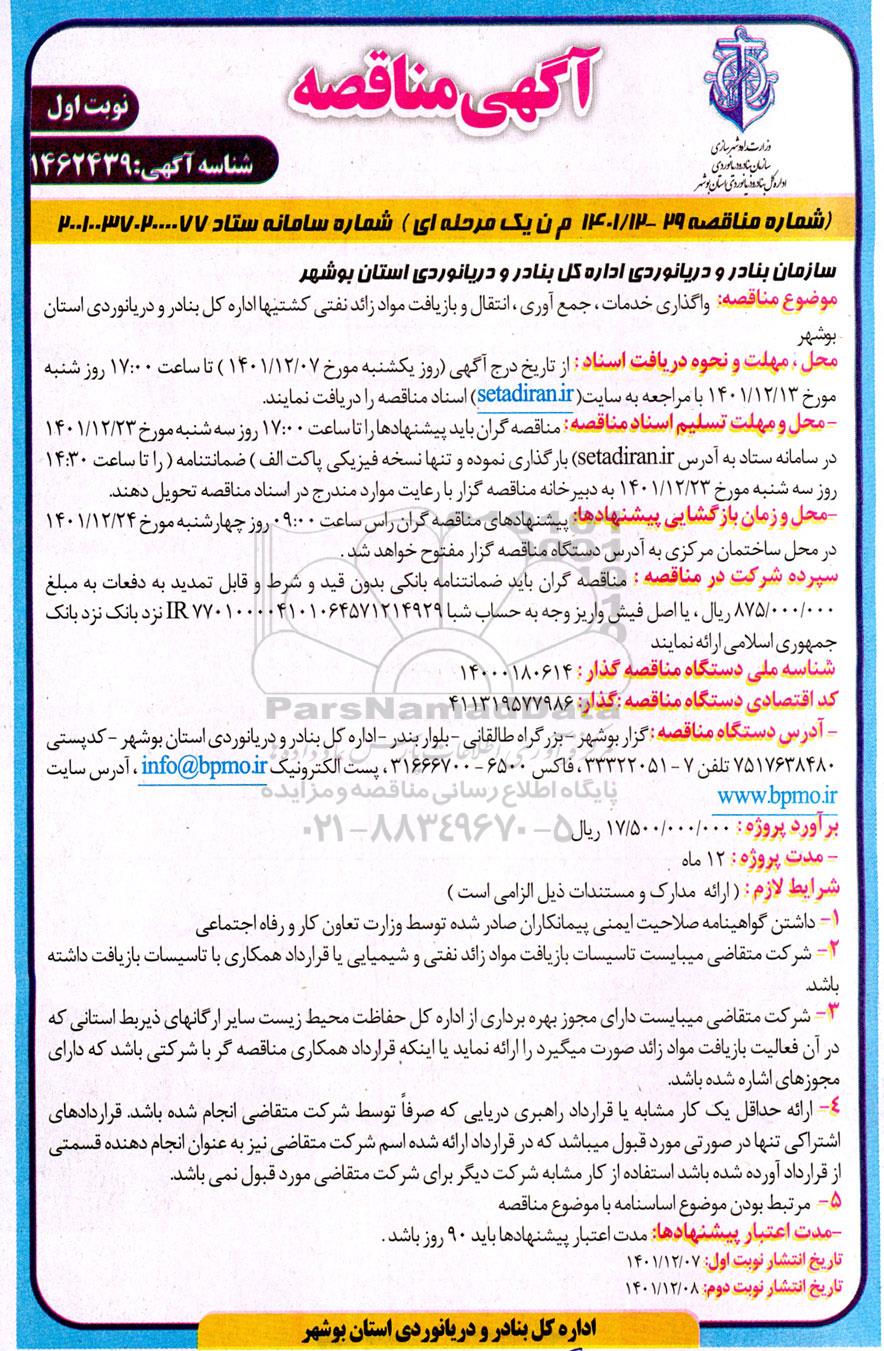 آگهی مناقصه
نوبت اول
شناسه آگهی: ۱۴۶۲۴۳۹
وزارت راه و شهرسازی
سازمان بنادر و دریانوردی
اداره کل بنادر و دریانوردی استان بوشهر
(شماره مناقصه ۲۹ -۱۴۰۱/۱۲ م ن یک مرحله ای ) شماره سامانه ستاد ۲۰۰۱۰۰۳۷۰۲۰۰۰۰۷۷
سازمان بنادر و دریانوردی اداره کل بنادر و دریانوردی استان بوشهر
موضوع مناقصه: واگذاری خدمات ، جمع آوری ، انتقال و بازیافت مواد زائد نفتی کشتیها اداره کل بنادر و دریانوردی استان
بوشهر
محل ، مهلت و نحوه دریافت اسناد : از تاریخ درج آگهی (روز یکشنبه مورخ ۱۴۰۱/۱۲/۰۷ ) تا ساعت ۱۷:۰۰ روز شنبه
مورخ ۱۴۰۱/۱۲/۱۳ با مراجعه به سایت( setadiran.ir) اسناد مناقصه را دریافت نمایند.
-محل و مهلت تسلیم اسناد مناقصه: مناقصه گران باید پیشنهادها را تا ساعت ۱۷:۰۰ روز سه شنبه مورخ ۱۴۰۱/۱۲/۲۳
در سامانه ستاد به آدرس setadiran.ir) بارگذاری نموده و تنها نسخه فیزیکی پاکت الف ) ضمانتنامه ( را تا ساعت ۱۴:۳۰
روز سه شنبه مورخ ۱۴۰۱/۱۲/۲۳ به دبیرخانه مناقصه گزار با رعایت موارد مندرج در اسناد مناقصه تحویل دهند.
-محل و زمان بازگشایی پیشنهادها: پیشنهادهای مناقصه گران راس ساعت ۰۹:۰۰ روز چهارشنبه مورخ ۱۴۰۱/۱۲/۲۴
در محل ساختمان مرکزی به آدرس دستگاه مناقصه گزار مفتوح خواهد شد .
سپرده شرکت در مناقصه : مناقصه گران باید ضمانتنامه بانکی بدون قید و شرط و قابل تمدید به دفعات به مبلغ
۸۷۵/۰۰۰/۰۰۰ ریال ، یا اصل فیش واریز وجه به حساب شبا IR ۷۷۰۱۰۰۰۰۴۱۰۱۰۶۴۵۷۱۲۱۴۹۲۹ نزد بانک نزد بانک
جمهوری اسلامی ارائه نمایند
شناسه ملی دستگاه مناقصه گذار : ۱۴۰۰۰۱۸۰۶۱۴
کد اقتصادی دستگاه مناقصه :گذار: ۴۱۱۳۱۹۵۷۷۹۸۶
- آدرس دستگاه مناقصه : گزار بوشهر -بزرگراه طالقانی -بلوار بندر -اداره کل بنادر و دریانوردی استان بوشهر - کدپستی
۷۵۱۷۶۳۸۴۸۰ تلفن ۷ - ۳۳۳۲۲۰۵۱ ، فاکس ۶۵۰۰ - ۳۱۶۶۶۷۰۰ ، پست الکترونیک info@bpmo.ir ، آدرس سایت
www.bpmo.ir
برآورد پروژه : ۱۷/۵۰۰/۰۰۰/۰۰۰ ریال
- مدت پروژه : ۱۲ ماه
شرایط لازم : ( ارائه مدارک و مستندات ذیل الزامی است )
۱- داشتن گواهینامه صلاحیت ایمنی پیمانکاران صادر شده توسط وزارت تعاون کار و رفاه اجتماعی
۲- شرکت متقاضی میبایست تاسیسات بازیافت مواد زائد نفتی و شیمیایی یا قرارداد همکاری با تاسیسات بازیافت داشته
باشد.
۳- شرکت متقاضی میبایست دارای مجوز بهره برداری از اداره کل حفاظت محیط زیست سایر ارگانهای ذیربط استانی که
در آن فعالیت بازیافت مواد زائد صورت میگیرد را ارائه نماید یا اینکه قرارداد همکاری مناقصه گر با شرکتی باشد که دارای
مجوزهای اشاره شده باشد.
۴- ارائه حداقل یک کار مشابه یا قرارداد راهبری دریایی که صرفاً توسط شرکت متقاضی انجام شده باشد. قراردادهای
اشتراکی تنها در صورتی مورد قبول میباشد که در قرارداد ارائه شده اسم شرکت متقاضی نیز به عنوان انجام دهنده قسمتی
از قرارداد آورده شده باشد استفاده از کار مشابه شرکت دیگر برای شرکت متقاضی مورد قبول نمی باشد.
۵- مرتبط بودن موضوع اساسنامه با موضوع مناقصه
-مدت اعتبار پیشنهادها: مدت اعتبار پیشنهادها باید ۹۰ روز باشد .
تاریخ انتشار نوبت اول: ۱۴۰۱/۱۲/۰۷
تاریخ انتشار نوبت دوم: ۱۴۰۱/۱۲/۰۸
اداره کل بنادر و دریانوردی استان بوشهر
ParsNamadData
پایگاه اطلاع رسانی مناقصه و مزایده
۰۲۱-۸۸۳۴۹۶۷۰-۵